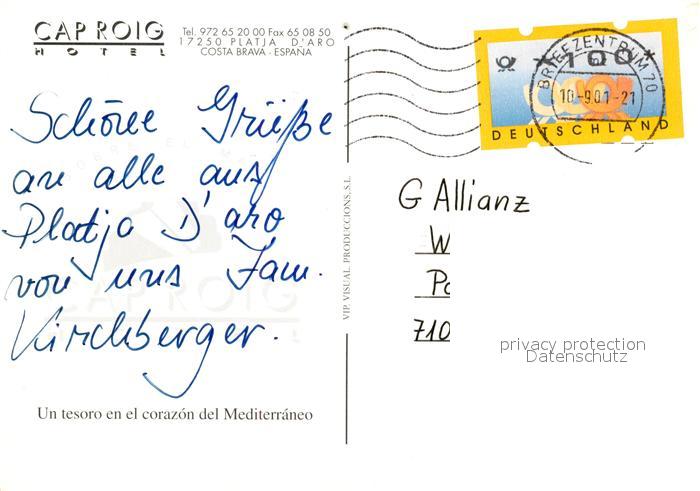 CAP ROIG
HOTEL
Tel. 972 65 20 00 Fax 65 08 50
17250 PLATJA D'ARO
COSTA BRAVA - ESPAÑA
Schöne Grüße
an alle aus
Platja D'aro
von uns Fam.
Kirchberger.
CAP ROIG
Un tesoro en el corazón del Mediterráneo
VIP. VISUAL PRODUCCIONS, S.L.
*100*
DEUTSCHLAND
BRIEFZENTRUM 70
10-9.01-21
G Allianz
W
Po
710
privacy protection
Datenschutz